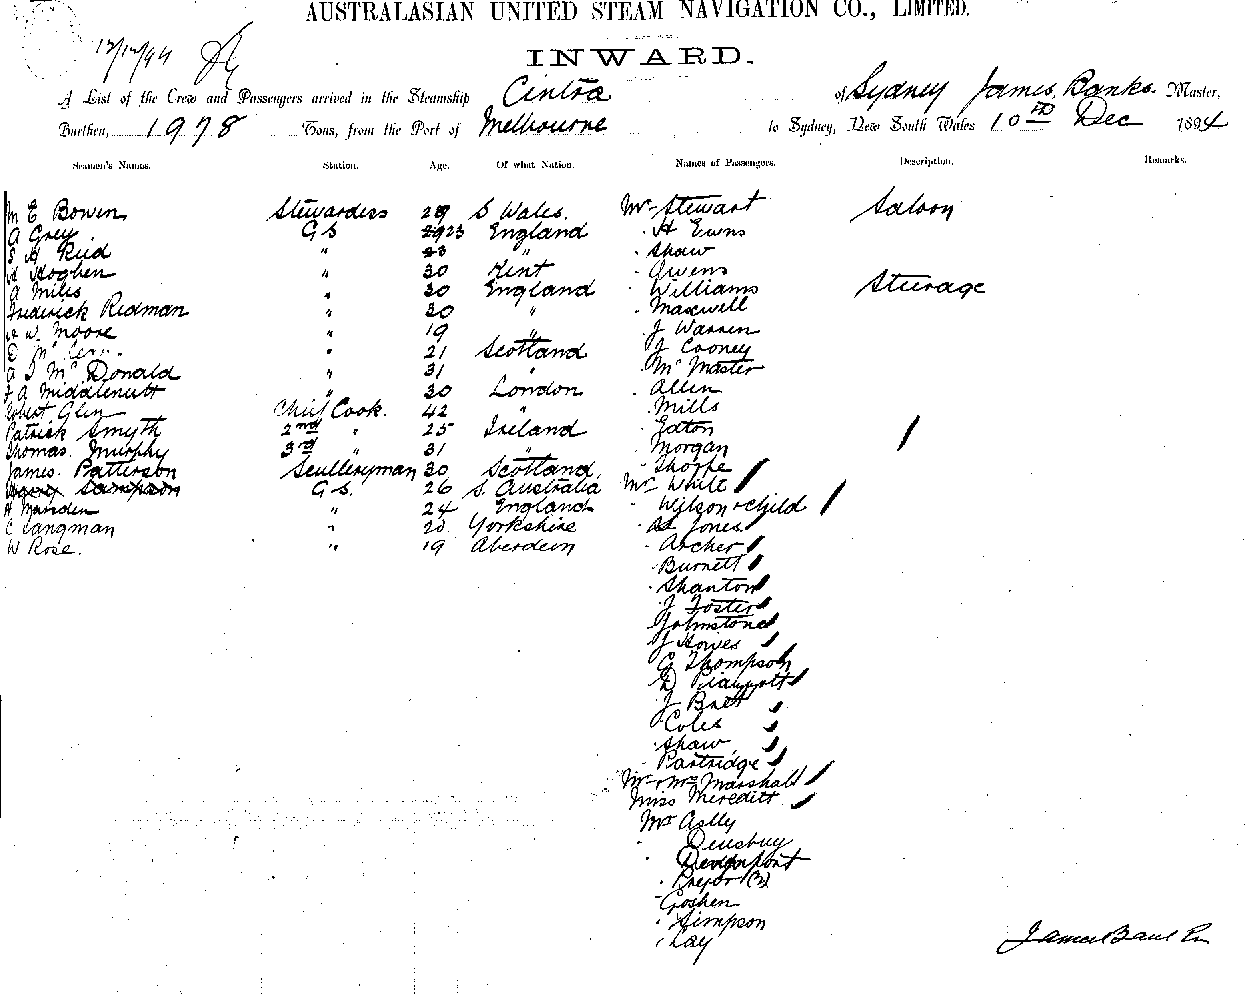 AUSTRALASIAN UNITED STEAM NAVIGATION CO., LIMITED.
12/12/94
INWARD.
A List of the Crew and Passengers arrived in the Steamship Cintra of Sydney James Banks Master,
Burthen, 1978 Tons, from the Port of Melbourne to Sydney, New South Wales 10TH Dec 1894
Seamen's Names. Station. Age. Of what Nation. Names of Passengers. Description. Remarks.
M E Bowen Stewardess 29 S Wales. Mr Stewart Saloon
A Grey G S 23 England H Ewns
S H Reid " 23 " Shaw
A Hoghen " 30 Kent Owens
A Mills " 30 England Williams Steerage
Frederick Redman " 30 " Maxwell
W. Moore " 19 " J Warren
" 21 Scotland J Cooney
A J McDonald " 31 " McMaster
J A Middlenutt " 30 London Allen
Robert Glen Chief Cook. 42 " Mills
Patrick Smyth 2nd " 25 Ireland Eaton
Thomas. Murphy 3rd " 31 " Morgan
James. Patterson Sculleryman 30 Scotland Thorpe
Sampson G S. 26 S. Australia Mr White
H Marsden " 24 England Wilson + child
C Langman " 20 Yorkshire Jones
W Rose. " 19 Aberdeen Archer
Burnett
Shanton
J Foster
Johnstone
J Howes
G Thompson
D
J
Coles
Shaw
Partridge
Mr + Mrs Marshall
Miss Meredith
Mr Aslly
Devenport
Pryor (2)
Goshen
Simpson
Lay
James Banks